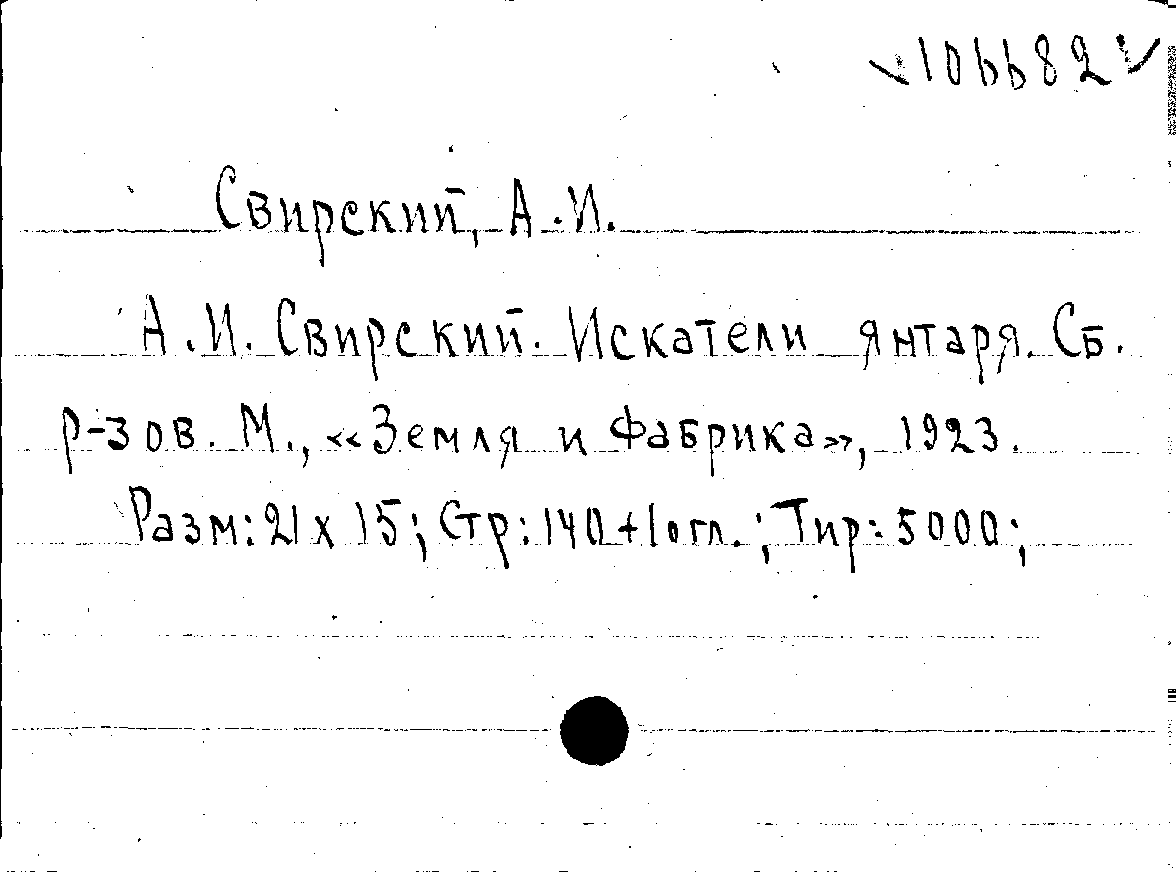 106682
Свирский, А.И.
А.И. Свирский. Искатели янтаря. Сб.
р-зов. М., «Земля и Фабрика», 1923.
Разм: 21 х 15; Стр: 140+1огл.; Тир: 5000;